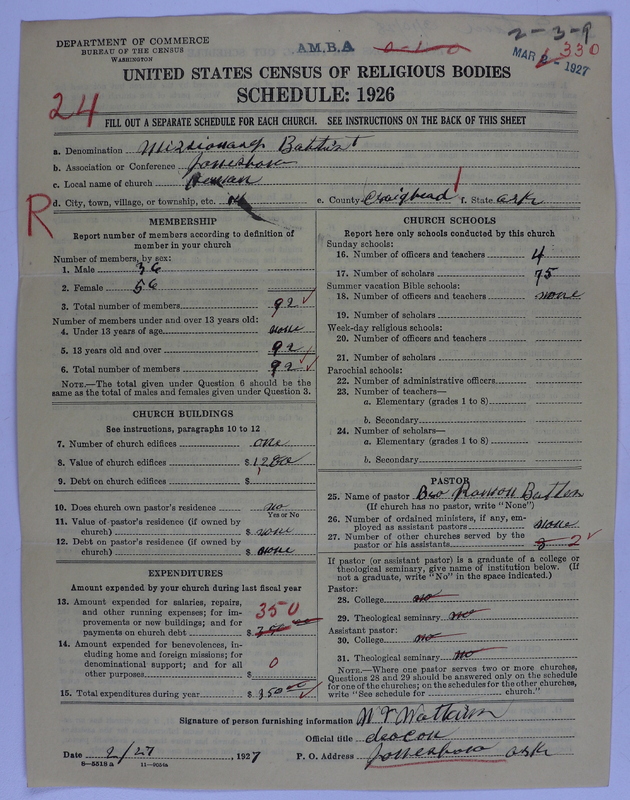 DEPARTMENT OF COMMERCE
BUREAU OF THE CENSUS
WASHINGTON
A.M.B.A
2-3-9
330
MAR 2 - 1927
UNITED STATES CENSUS OF RELIGIOUS BODIES
SCHEDULE: 1926
24
FILL OUT A SEPARATE SCHEDULE FOR EACH CHURCH. SEE INSTRUCTIONS ON THE BACK OF THIS SHEET
a. Denomination Missionary Baptist
b. Association or Conference Jonesboro
c. Local name of church
d. City, town, village, or township, etc.
e. County Craighead f. State Ark
R
MEMBERSHIP
Report number of members according to definition of
member in your church
Number of members, by sex:
1. Male 36
2. Female 56
3. Total number of members 92
Number of members under and over 13 years old:
4. Under 13 years of age none
5. 13 years old and over 92
6. Total number of members 92
NOTE.—The total given under Question 6 should be
same as the total of males and females given under Question 3.
CHURCH BUILDINGS
See instructions, paragraphs 10 to 12
7. Number of church edifices one
8. Value of church edifices $ 1200
9. Debt on church edifices $
10. Does church own pastor's residence no
Yes or No
11. Value of pastor's residence (if owned by
church) $ none
12. Debt on pastor's residence (if owned by
church) $ none
EXPENDITURES
Amount expended by your church during last fiscal year
13. Amount expended for salaries, repairs,
and other running expenses; for im-
provements or new buildings; and for
payments on church debt $ 350
14. Amount expended for benevolences, in-
cluding home and foreign missions; for
denominational support; and for all
other purposes $ 0
15. Total expenditures during year $ 350 00
CHURCH SCHOOLS
Report here only schools conducted by this church
Sunday schools:
16. Number of officers and teachers 4
17. Number of scholars 75
Summer vacation Bible schools:
18. Number of officers and teachers none
19. Number of scholars
Week-day religious schools:
20. Number of officers and teachers
21. Number of scholars
Parochial schools:
22. Number of administrative officers
23. Number of teachers—
a. Elementary (grades 1 to 8)
b. Secondary
24. Number of scholars—
a. Elementary (grades 1 to 8)
b. Secondary
PASTOR
25. Name of pastor Bro Ranson
(If church has no pastor, write "None")
26. Number of ordained ministers, if any, em-
ployed as assistant pastors none
27. Number of other churches served by the
pastor or his assistants 3 2
If pastor (or assistant pastor) is a graduate of a college or
theological seminary, give name of institution below. (If
not a graduate, write "No" in the space indicated.)
Pastor:
28. College no
29. Theological seminary no
Assistant pastor:
30. College no
31. Theological seminary no
NOTE.—Where one pastor serves two or more churches,
Questions 28 and 29 should be answered only on the schedule
for one of the churches; on the schedules for the other churches,
write "See schedule for church."
Signature of person furnishing information
Official title deacon
Date 2/27, 1927 P. O. Address Jonesboro ark
8-5518 a 11-9054a